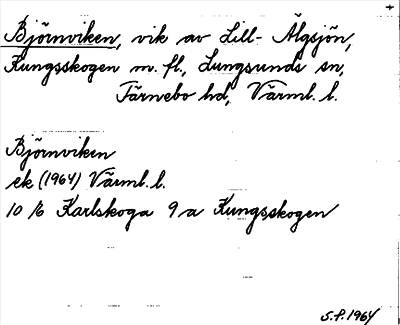 Björnviken, vik av Lill-Älgsjön,
Kungsskogen m. fl., Lungsunds sn,
Färnebo hd, Värml. l.
Björnviken
ek (1964) Värml. l.
10 f6 Karlskoga 9 a Kungsskogen
S.P. 1964